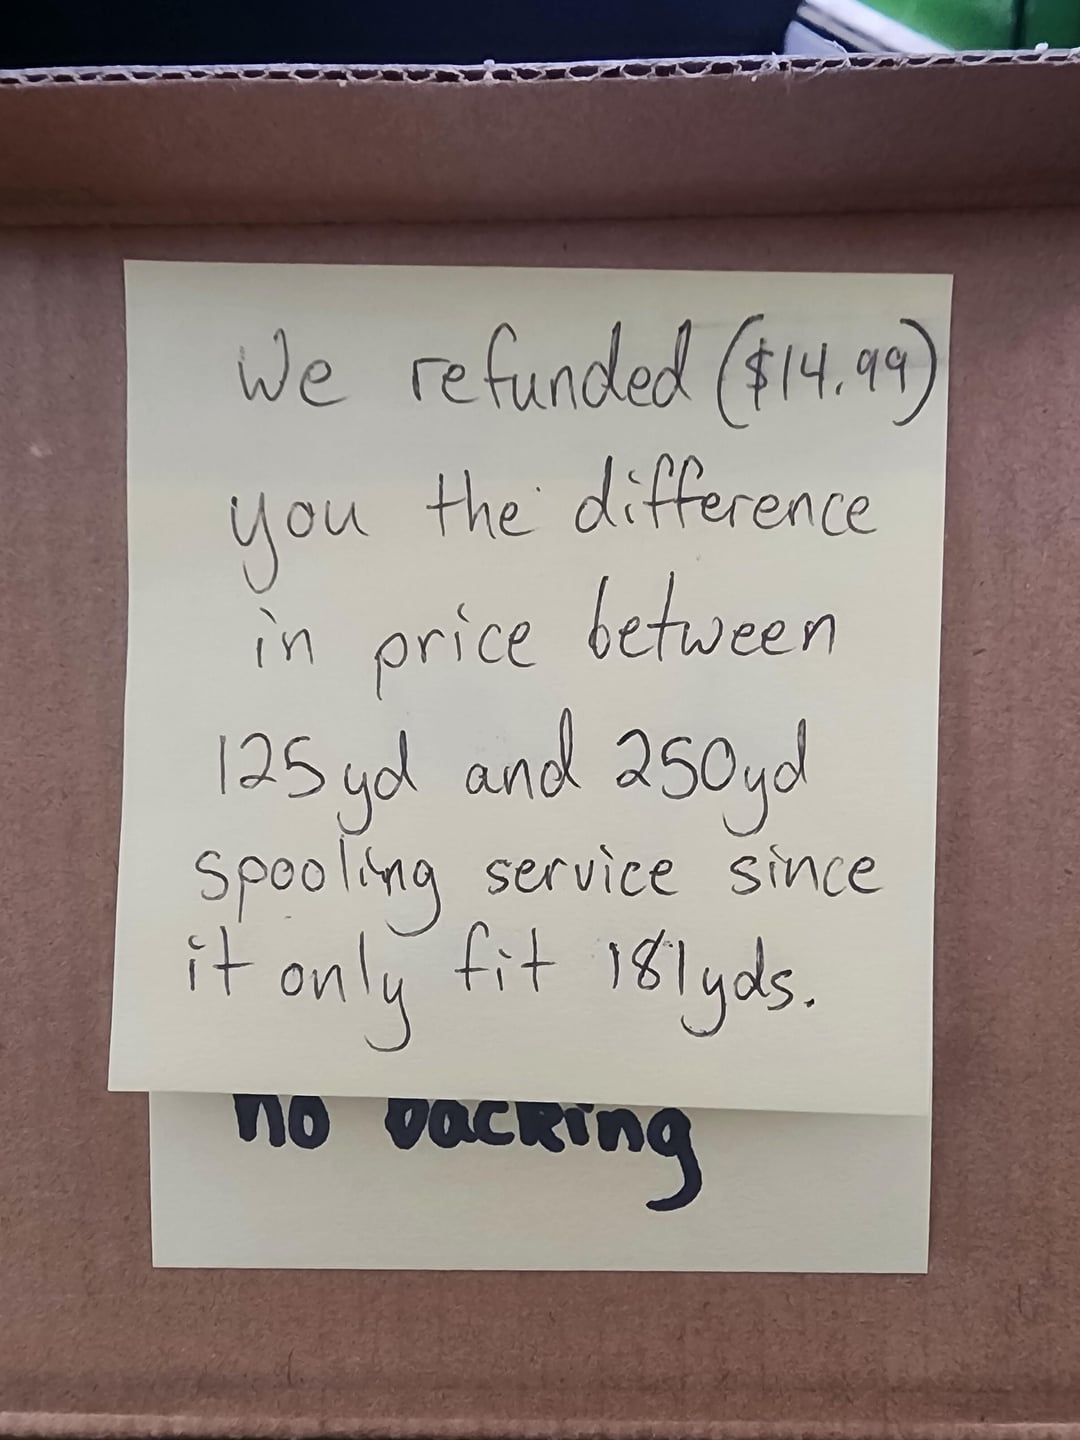 We refunded ($14.99)
you the difference
in price between
125yd and 250yd
spooling service since
it only fit 181yds.
no backing